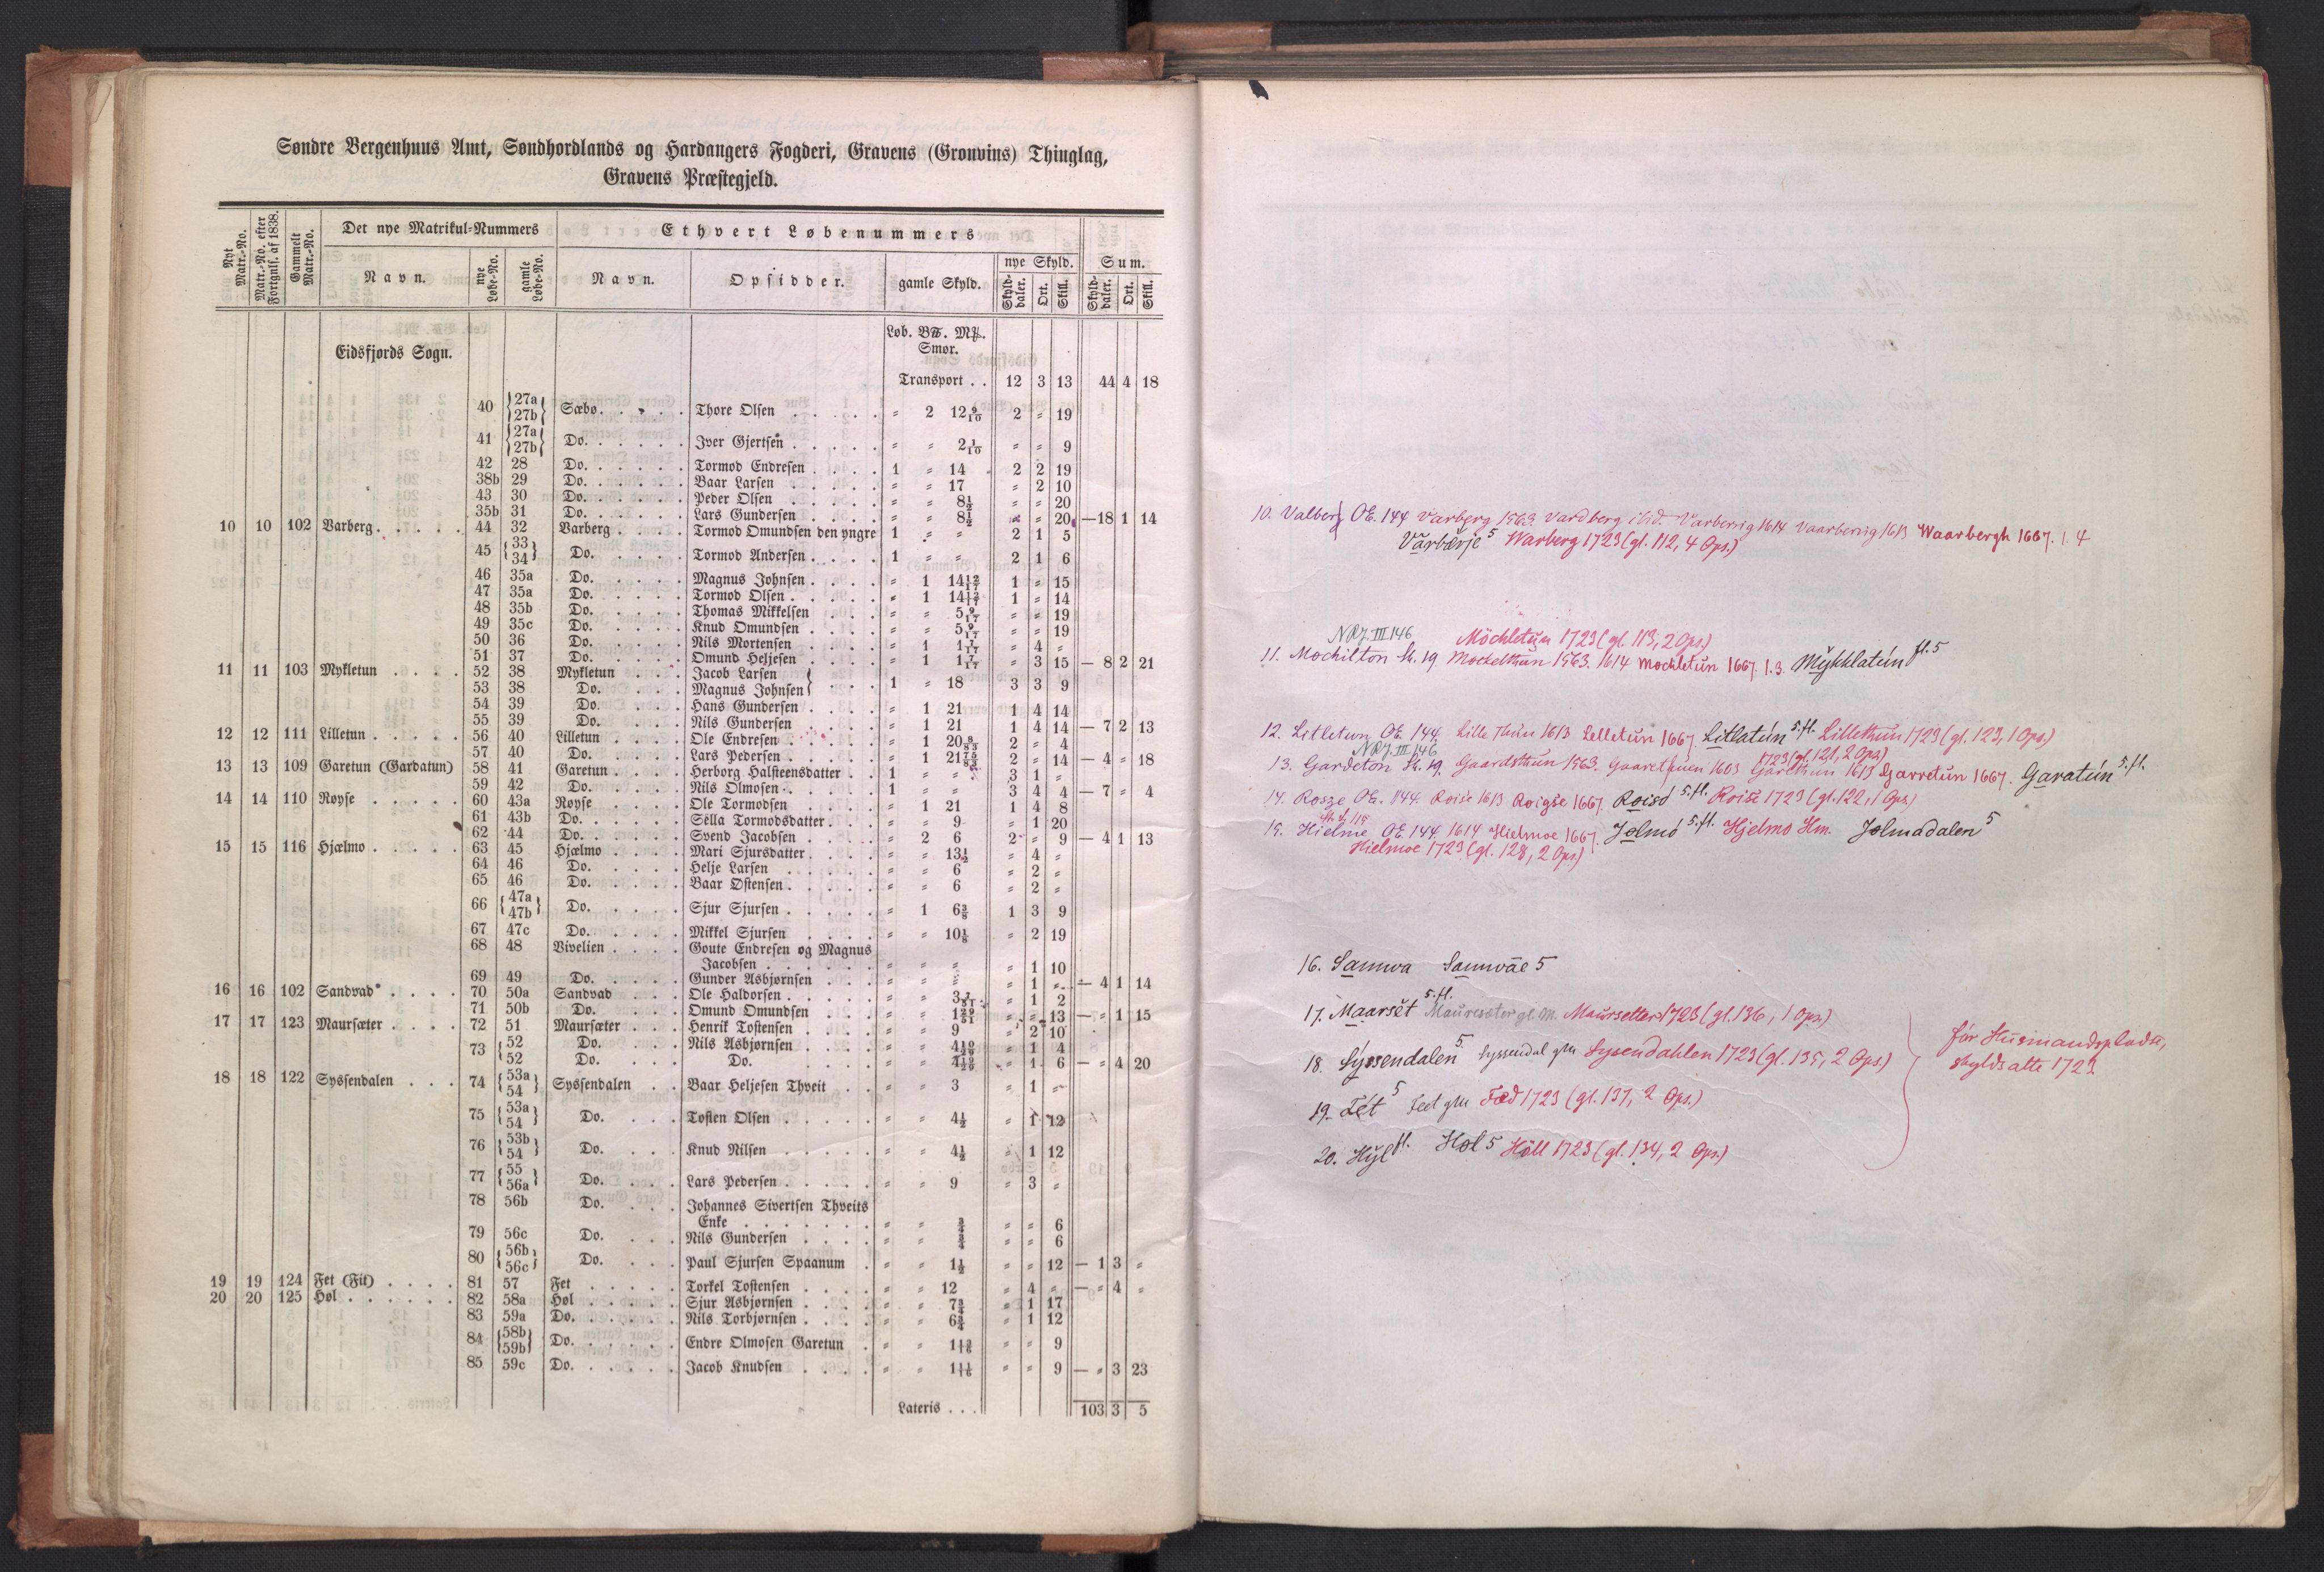 Søndre Bergenhuus Amt, Søndhordlands og Hardangers Fogderi, Gravens (Gronvins) Thinglag,
Gravens Præstegjeld.
Nyt Matr.-No. Matr.-No. efter Fortgnls. af 1838. Gammelt Matr.-No. Det nye Matrikul-Nummers Ethvert Løbenummers
Navn. nye Løbe-No. gamle Løbe-No. Navn. Opsidder. gamle Skyld. nye Skyld. Sum.
Skylddaler. Ort. Skill. Skylddaler. Ort. Skill.
Eidsfjords Sogn. Løb. B℔. M℔.
Smør.
Transport . . 12 3 13 44 4 18
40 {27a 27b} Sæbø. . . . . Thore Olsen . . . . . „ 2 12 9/10 2 „ 19
41 {27a 27b} Do. . . . . . Iver Gjertsen . . . . . „ „ 2 1/10 „ „ 9
42 28 Do. . . . . . Tormod Endresen . . . . 1 „ 14 2 2 19
38b 29 Do. . . . . . Baar Larsen . . . . . „ „ 17 „ 2 10
43 30 Do. . . . . . Peder Olsen . . . . . „ „ 8½ „ „ 20
35b 31 Do. . . . . . Lars Gundersen . . . . „ „ 8½ „ „ 20 — 18 1 14
10 10 102 Varberg. . . . . 44 32 Varberg . . . . Tormod Omundsen den yngre 1 „ „ 2 1 5
45 {33 34} Do. . . . . Tormod Andersen . . . . 1 „ „ 2 1 6
46 35a Do. . . . . Magnus Johnsen . . . . „ 1 14 12/17 1 „ 15
47 35a Do. . . . . Tormod Olsen . . . . . „ 1 14 13/17 1 „ 14
48 35b Do. . . . . Thomas Mikkelsen . . . . „ „ 5 9/17 „ „ 19
49 35c Do. . . . . Knud Omundsen . . . . „ „ 5 9/17 „ „ 19
50 36 Do. . . . . Nils Mortensen . . . . „ 1 1 7/17 „ 4 „
51 37 Do. . . . . Omund Heljesen . . . . „ 1 1 7/17 „ 3 15 — 8 2 21
11 11 103 Mykletun . . . . 52 38 Mykletun . . . Jacob Larsen }
53 38 Do. . . . Magnus Johnsen } . . . 1 „ 18 3 3 9
54 39 Do. . . . Hans Gundersen . . . . „ 1 21 1 4 14
55 39 Do. . . . Nils Gundersen . . . . „ 1 21 1 4 14 — 7 2 13
12 12 111 Lilletun . . . . . 56 40 Lilletun . . . . Ole Endresen . . . . . „ 1 20 8/83 2 „ 4
57 40 Do. . . . . Lars Pedersen . . . . . „ 1 21 75/83 2 „ 14 — 4 „ 18
13 13 109 Garetun (Gardatun) 58 41 Garetun . . . . Herborg Halsteensdatter . . 1 „ „ 3 1 „
59 42 Do. . . . . Nils Olmosen . . . . . 1 „ „ 3 4 4 — 7 „ 4
14 14 110 Røyse . . . . . 60 43a Røyse . . . . Ole Tormodsen . . . . „ 1 21 1 4 8
61 43b Do. . . . . Sella Tormodsdatter . . . „ „ 9 „ 1 20
62 44 Do. . . . . Svend Jacobsen . . . . „ 2 6 2 „ 9 — 4 1 13
15 15 116 Hjælmo . . . . . 63 45 Hjælmo . . . . Mari Sjursdatter . . . . „ „ 13½ „ 4 „
64 46 Do. . . . . Helje Larsen . . . . . „ „ 6 „ 2 „
65 46 Do. . . . . Baar Østensen . . . . . „ „ 6 „ 2 „
66 {47a 47b} Do. . . . . Sjur Sjursen . . . . . „ 1 6⅜ 1 3 9
67 47c Do. . . . . Mikkel Sjursen . . . . „ „ 10⅛ „ 2 19
68 48 Vivelien . . . . Goute Endresen og Magnus
Jacobsen . . . . . . „ „ „ „ 1 10
69 49 Do. . . . . Gunder Asbjørnsen . . . „ „ „ „ 1 „ — 4 1 14
16 16 102 Sandvad . . . . 70 50a Sandvad . . . Ole Haldorsen . . . . . „ „ 3 7/51 „ 1 2
71 50b Do. . . . Omund Omundsen . . . „ „ 1 29/51 „ „ 13 — „ 1 15
17 17 123 Maursæter . . . . 72 51 Maursæter . . . Henrik Tostensen . . . . „ „ 9 „ 2 10
73 {52 Do. . . . Nils Asbjørnsen . . . . „ „ 4 „ 1 4
52 Do. . . . Do. . . . . „ „ 4 „ 1 6 — „ 4 20
18 18 122 Syssendalen . . . 74 {53a 54} Syssendalen . . Baar Heljesen Thveit . . „ „ 3 „ 1 „
75 {53a 54} Do. . . . Tosten Olsen . . . . . „ „ 4½ „ 1 12
76 {53b 54} Do. . . . Knud Nilsen . . . . . „ „ 4½ „ 1 12
77 {55 56a} Do. . . . Lars Pedersen . . . . . „ „ 9 „ 3 „
78 56b Do. . . . Johannes Sivertsen Thveits
Enke . . . . . . . „ „ ¾ „ „ 6
79 56c Do. . . . Nils Gundersen . . . . „ „ ¾ „ „ 6
80 {56b 56c} Do. . . . Paul Sjursen Spaanum . „ „ 1½ „ „ 12 — 1 3 „
19 19 124 Fet (Fit) . . . . 81 57 Fet . . . . . Torkel Tostensen . . . . „ „ 12 „ 4 „ — „ 4 „
20 20 125 Høl . . . . . . 82 58a Høl . . . . . Sjur Asbjørnsen . . . . „ „ 7¾ „ 1 17
83 59a Do. . . . . . Nils Torbjørnsen . . . . „ „ 6¾ „ 1 12
84 {58b 59b} Do. . . . . . Endre Olmosen Garetun . „ „ 1 „ „ 9
85 59c Do. . . . . . Jacob Knudsen . . . . „ „ 1 11/16 „ „ 9 — „ 3 23
Lateris . . . 103 3 5
10. Valberg OE. 144 Varberg 1563. Vardberg ibid. Varbervig 1614 Vaarbervig 1613 Waarbergh 1667. 1. 4
Varbærje 5 Warberg 1723 (gl. 112, 4 Ops.)
NRJ. III 146 Möchletun 1723 (gl. 113, 2 Ops.)
11. Mochilton St. 19 Mockelthun 1563. 1614 Mochletun 1667. 1.3. Mykklatún fl. 5
12. Litletun OE. 144. Lille Thun 1613 Lelletun 1667. Litlatún 5. fl. Lillethun 1723 (gl. 123, 1 Ops.)
NRJ. III 146 1723 (gl. 121, 2 Ops.)
13. Gardeton St. 19. Gaardsthun 1563. Gaarethuen 1603 Garethun 1613 Garretun 1667. Garatún 5. fl.
14. Rosze OE. 144. Roise 1613 Roigse 1667. Roisd 5. fl. Roise 1723 (gl. 122, 1 Ops.)
15. Hielme OE. 144. 1614 Hielmoe 1667. Jølmó 5. fl. Hjelmo Hm. Jølmadalen 5
Hielmoe 1723 (gl. 128, 2 Ops.)
16. Sannva Sannvāe 5
17. Maarsět 5. fl. Mauresæter gl. M. Maursetter 1723 (gl. 136, 1 Ops.)
18. Sýssendalen 5. Syssendal glM Sysendahlen 1723 (gl. 135, 2 Ops.)
før Husmandspladse,
skyldsatte 1723
19. Fét 5 Feet glM Fæd 1723 (gl. 137, 2 Ops.)
20. Hýl fl. Høl 5 Höll 1723 (gl. 134, 2 Ops.)